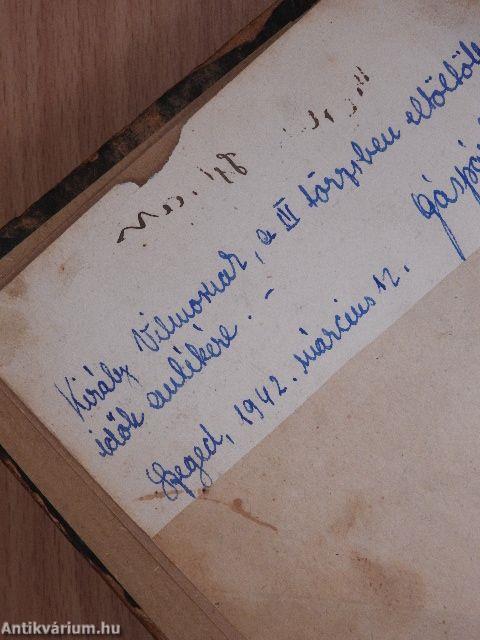 Király Vilmosnak, a III törzsben eltöltött
idők emlékére. -
Szeged, 1942. március 12.
Gáspár
Antikvárium.hu